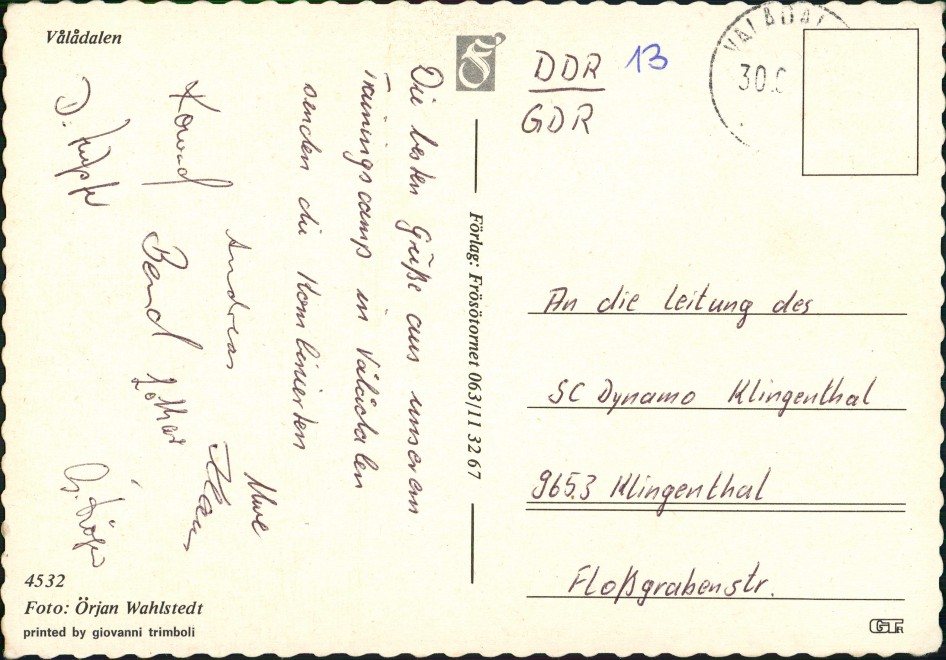 Vålådalen
Die besten Grüße aus unserem
Trainingscamp in Vålådalen
senden die Kombinierten
Uwe
Andreas
Klaus
Konrad
Bernd
Lothar
D.
G.
4532
Foto: Örjan Wahlstedt
printed by giovanni trimboli
Förlag: Frösötornet 063/11 32 67
DDR 13
GDR
VÅLÅDAL
30.
An die Leitung des
SC Dynamo Klingenthal
9653 Klingenthal
Floßgrabenstr.